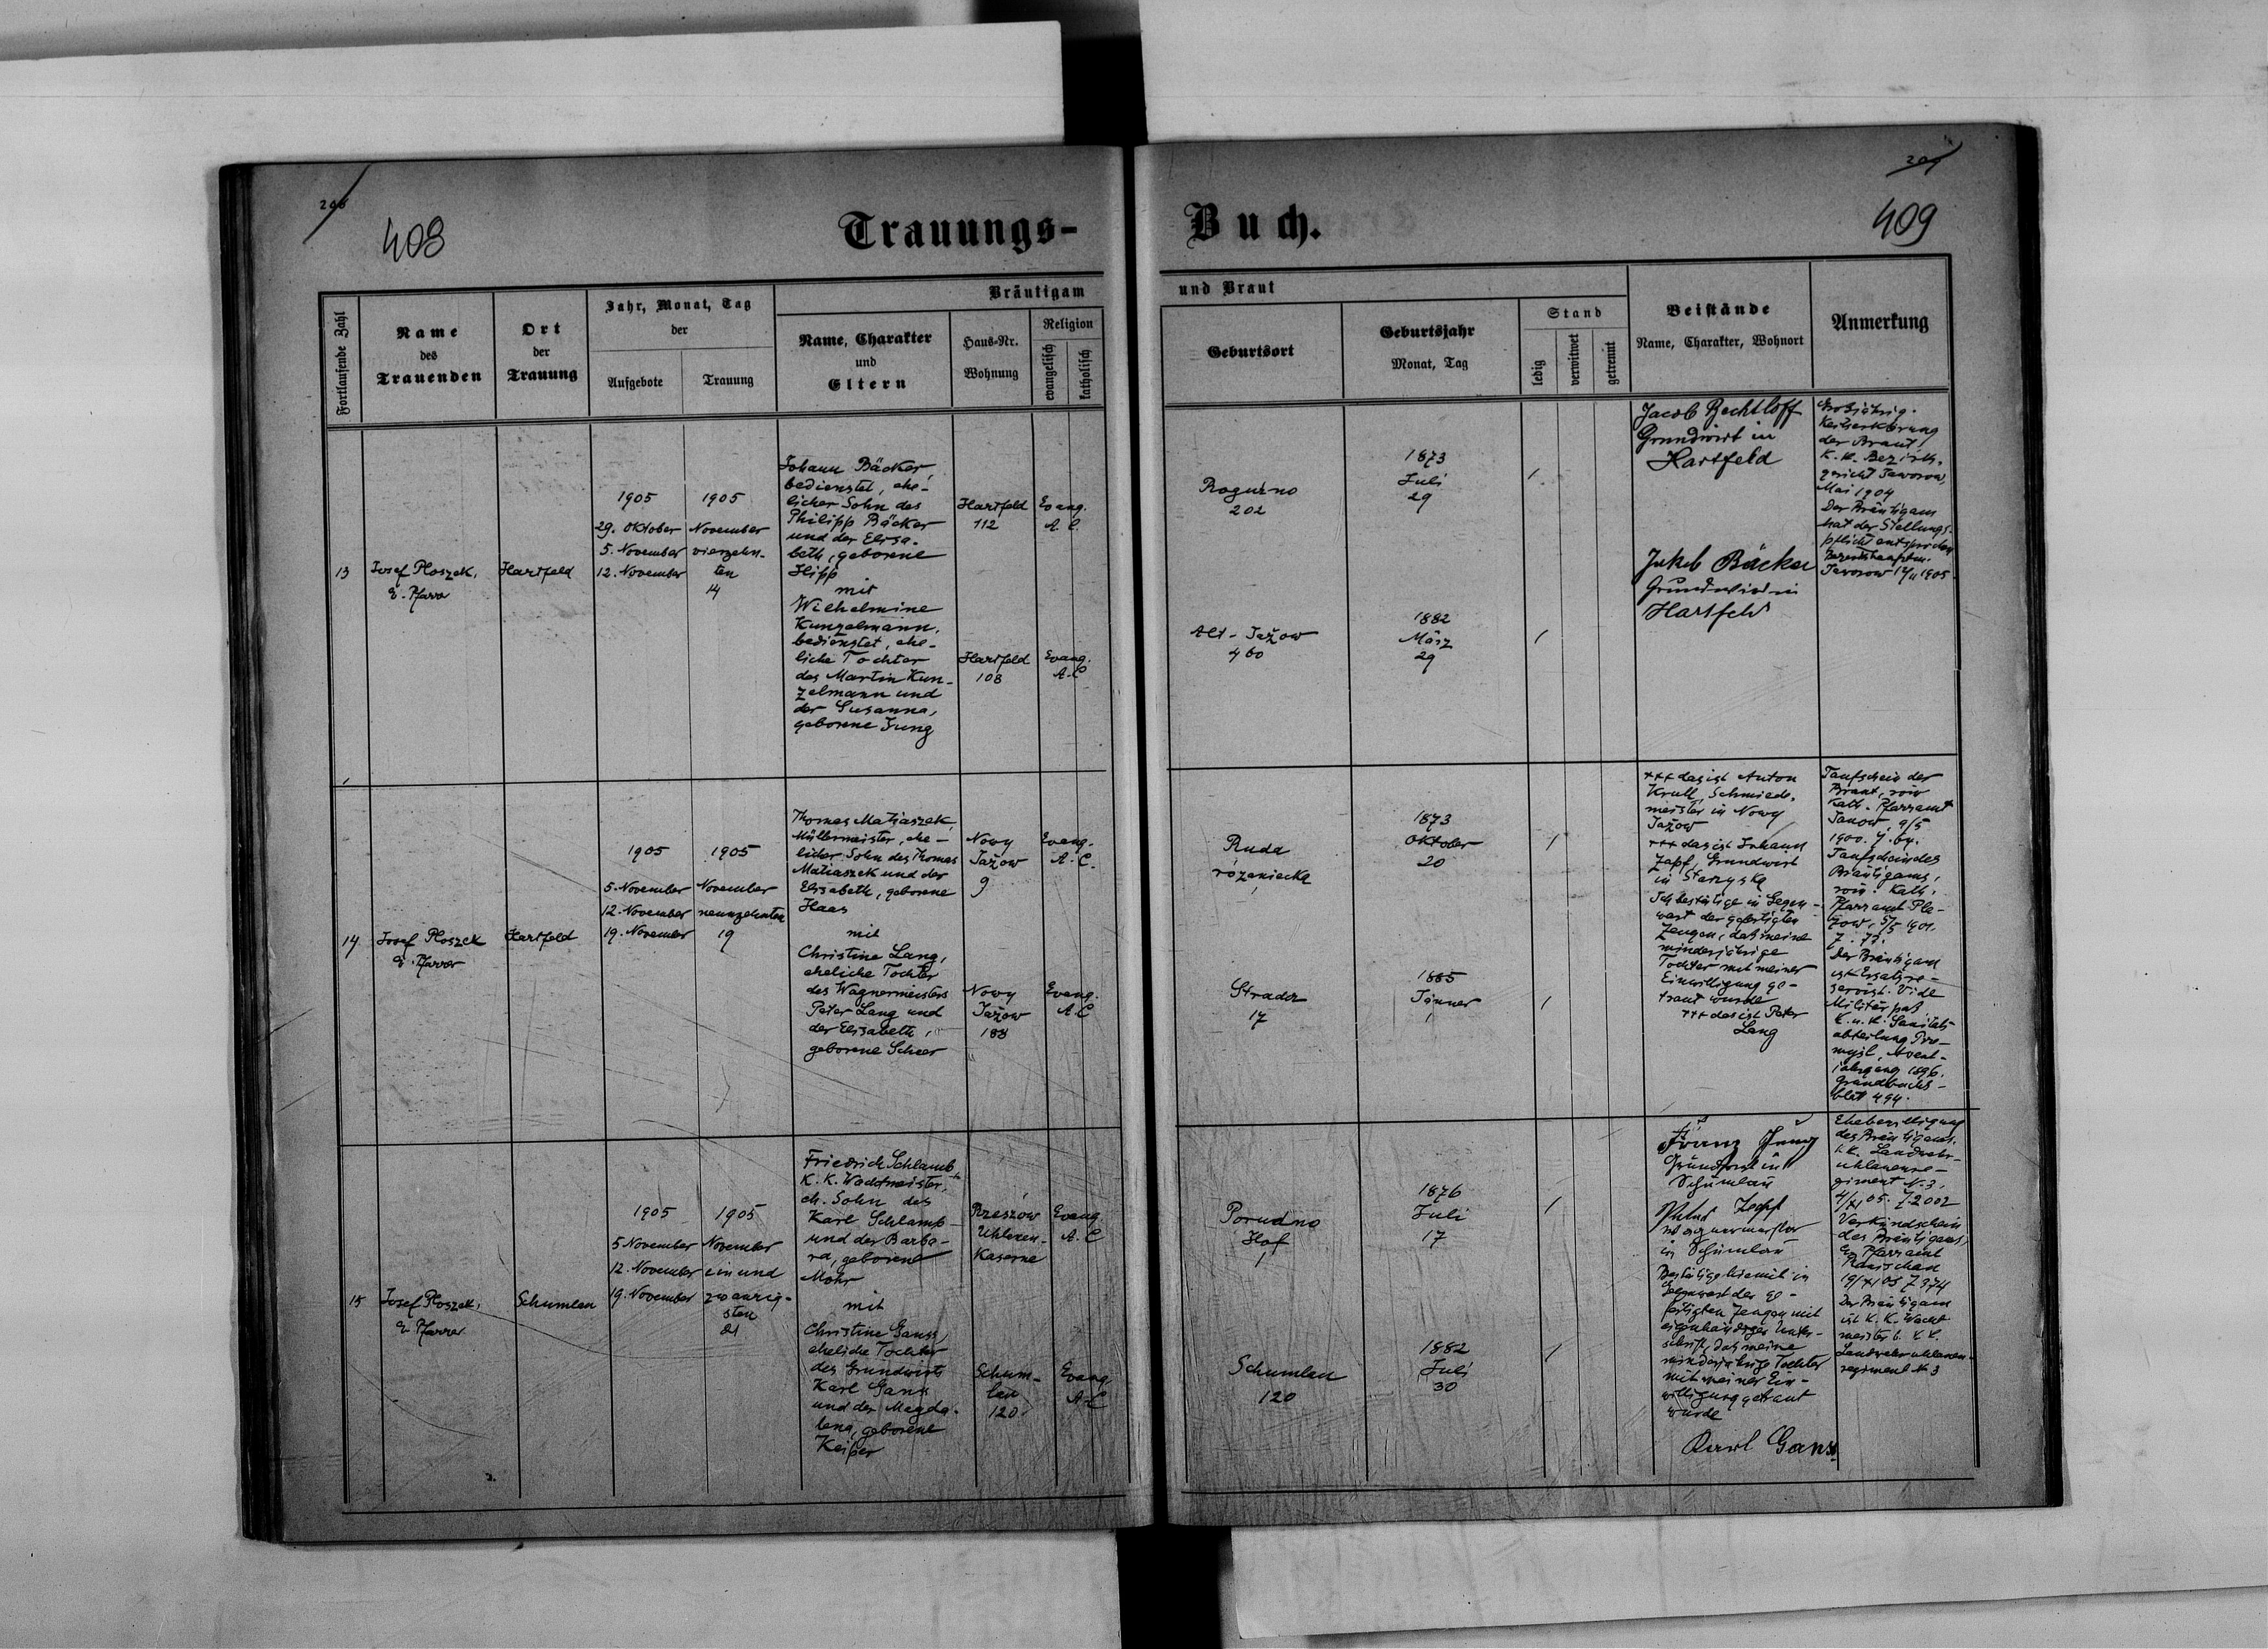 408
Trauungs-
Buch.
409
Bräutigam
und Braut
Fortlaufende Zahl
Name
des
Trauenden
Ort
der
Trauung
Jahr, Monat, Tag
der
Aufgebote
Trauung
Name, Charakter
und
Eltern
Haus-Nr.
Wohnung
Religion
evangelisch
katholisch
Geburtsort
Geburtsjahr
Monat, Tag
Stand
ledig
verwitwet
getrennt
Beistände
Name, Charakter, Wohnort
Anmerkung
13
Josef Ploszek,
E. Pfarrer
Hartfeld
1905
29. Oktober
5. November
12. November
1905
November
vierzehn-
ten
14
Johann Bäcker,
bedienstet, ehe-
licher Sohn des
Philipp Bäcker
und der Elisa-
beth, geborene
Hipp
mit
Wilhelmine
Kunzelmann,
bedienstet, ehe-
liche Tochter
des Martin Kun-
zelmann und
der Susanna,
geborene Jung
Hartfeld
112
Evang.
A. C.
Hartfeld
108
Evang.
A. C
Roguźno
202
1873
Juli
29
Alt-Jažow
460
1882
März
29
Jacob Bechtloff
Grundwirt in
Hartfeld
Jakob Bäcker
Grundwirt in
Hartfeld
Großjährig-
keitserklärung
der Braut,
K. K. Bezirks-
gericht Jaworow,
Mai 1904
Der Bräutigam
hat der Stellungs-
pflicht entsprochen
Jaworow 14/11 1905
14
Josef Ploszek
E. Pfarrer
Hartfeld
1905
5. November
12. November
19. November
1905
November
neunzehnten
19
Thomas Matiaszek,
Müllermeister, ehe-
licher Sohn des Thomas
Matiaszek und der
Elisabeth, geborene
Haas
mit
Christine Lang,
eheliche Tochter
des Wagnermeisters
Peter Lang und
der Elisabeth,
geborene Scheer
Nowy
Jažow
9
Evang.
A. C.
Nowy
Jažow
188
Evang.
A. C
Ruda
różaniecka
1873
Oktober
20
Stradez
17
1885
Jänner
1
+++ das ist Anton
Krull, Schmiede-
meister in Nowy
Jažow
+++ das ist Johann
Zapf, Grundwirt
in Starzyska
Ich bestätige in Gegen-
wart der gefertigten
Zeugen, daß meine
minderjährige
Tochter mit meiner
Einwilligung ge-
traut wurde
+++ das ist Peter
Lang
Taufschein der
Braut, röm.
Kath. Pfarramt
Janow, 9/5
1900. Z. 64.
Taufschein des
Bräutigams,
röm. Kath.
Pfarramt Ple-
Der Bräutigam
ist Ersatzre-
servist. Vide
Militärpaß
K. u. K. Sanitäts-
abteilung Prze-
mysl, Assent-
jahrgang 1896.
Grundbuchs-
blatt 494.
15
Josef Ploszek,
E. Pfarrer
Schumlau
1905
5 November
12. November
19. November
1905
November
ein und
zwanzig-
sten
21
Friedrich Schlamb,
K. K. Wachtmeister,
eh. Sohn des
Karl Schlamp
und der Barba-
ra, geborene
Mohr
mit
Christine Ganss,
eheliche Tochter
des Grundwirts
Karl Ganss
und der Magda-
lena, geborene
Keiper
Rzeszow
Uhlanen-
Kaserne
Evang
A. C
Schum-
lau
120
Evang
A. C
Porudno
Hof
1
1876
Juli
17
Schumlau
120
1882
Juli
30
Franz Jung
Grundwirt in
Schumlau
Wagnermeister
in Schumlau
Bestätige hiemit in
Gegenwart der ge-
fertigten Zeugen mit
eigenhändiger Unter-
schrift, daß meine
minderjährige Tochter
mit meiner Ein-
willigung getraut
wurde
Karl Ganss
Ehebewilligung
des Bräutigams,
k. k. Landwehr-
uhlanenre-
giment N. 3.
4/XI 05. Z 2002
Verkündschein
des Bräutigams,
Ev. Pfarramt
Ranischau
19/XI 05 Z 374
Der Bräutigam
ist K. K. Wacht-
meister b. k. k.
Landwehruhlanen-
regiment N 3